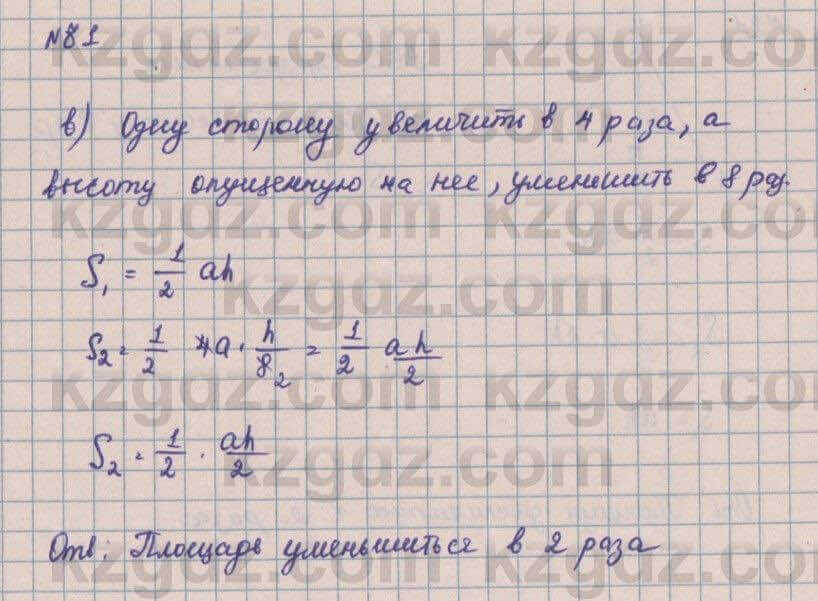 №81
в) Одну сторону увеличить в 4 раза, а
высоту опущенную на нее, уменьшить в 8 раз.
S₁ = 1/2 ah
S₂ = 1/2 4a · h/8₂ = 1/2 ah/2
S₂ = 1/2 · ah/2
Отв: Площадь уменьшиться в 2 раза
kzgdz.com